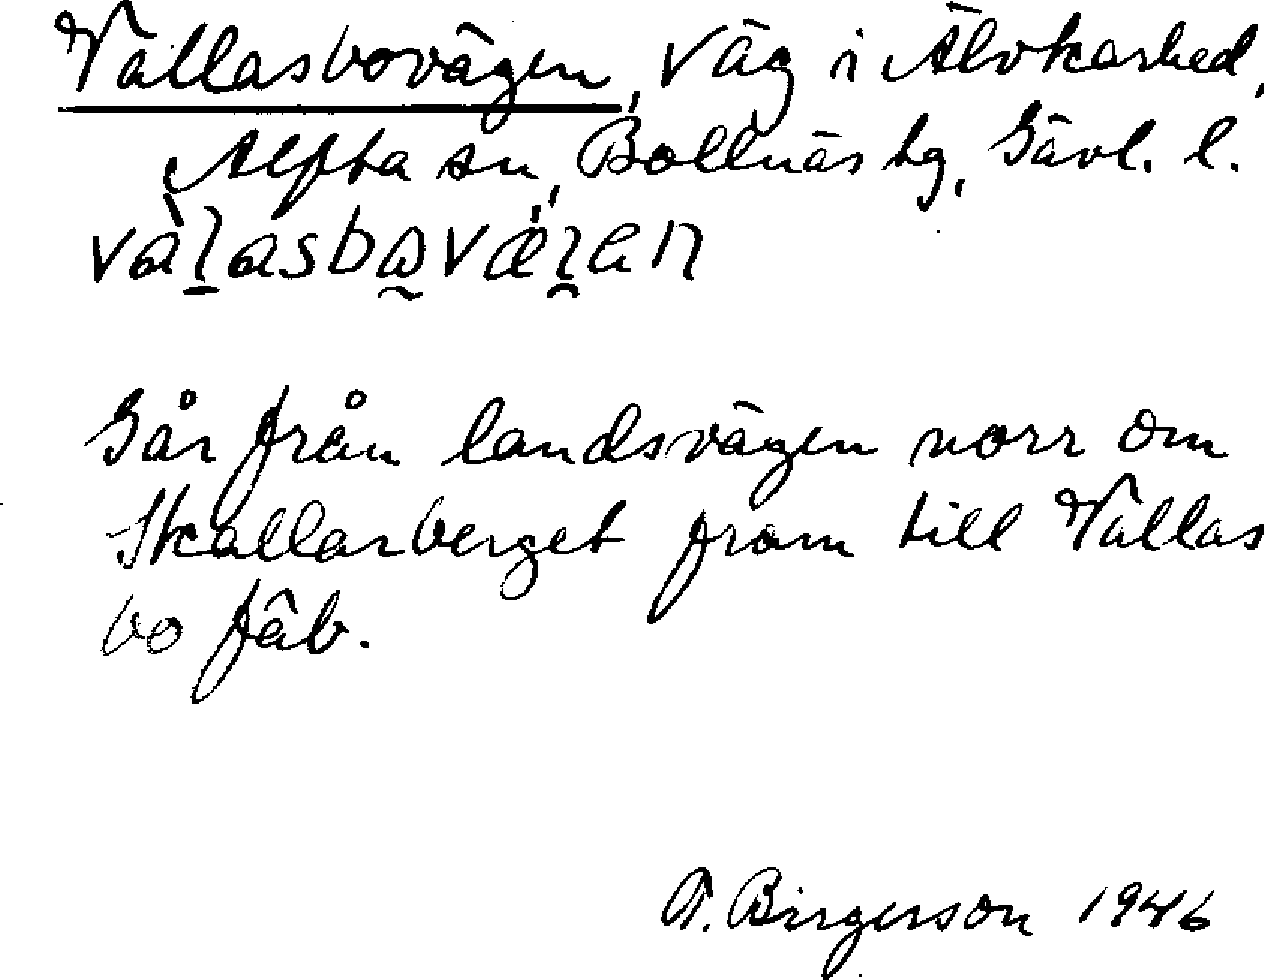 Vallasbovägen, väg i Älvkarhed,
Alfta sn, Bollnäs tg, Gävl. l.
Går från landsvägen norr om
Skallarberget fram till Vallas
bo fäb.
T. Birgerson 1946